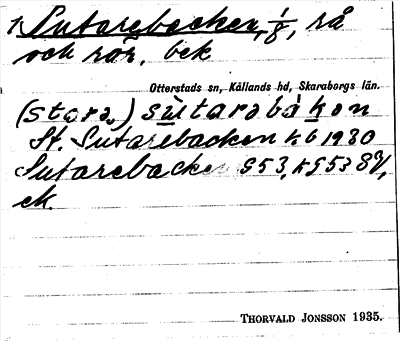 1. Sutarebacken, 1/8, rå
och rör, bek
Otterstads sn, Kållands hd, Skaraborgs län.
(stɷra) sùtarəbàkən
St. Sutarebacken hb 1930
Sutarebacken G53, KG53 8⁄,
ek.
THORVALD JONSSON 1935.